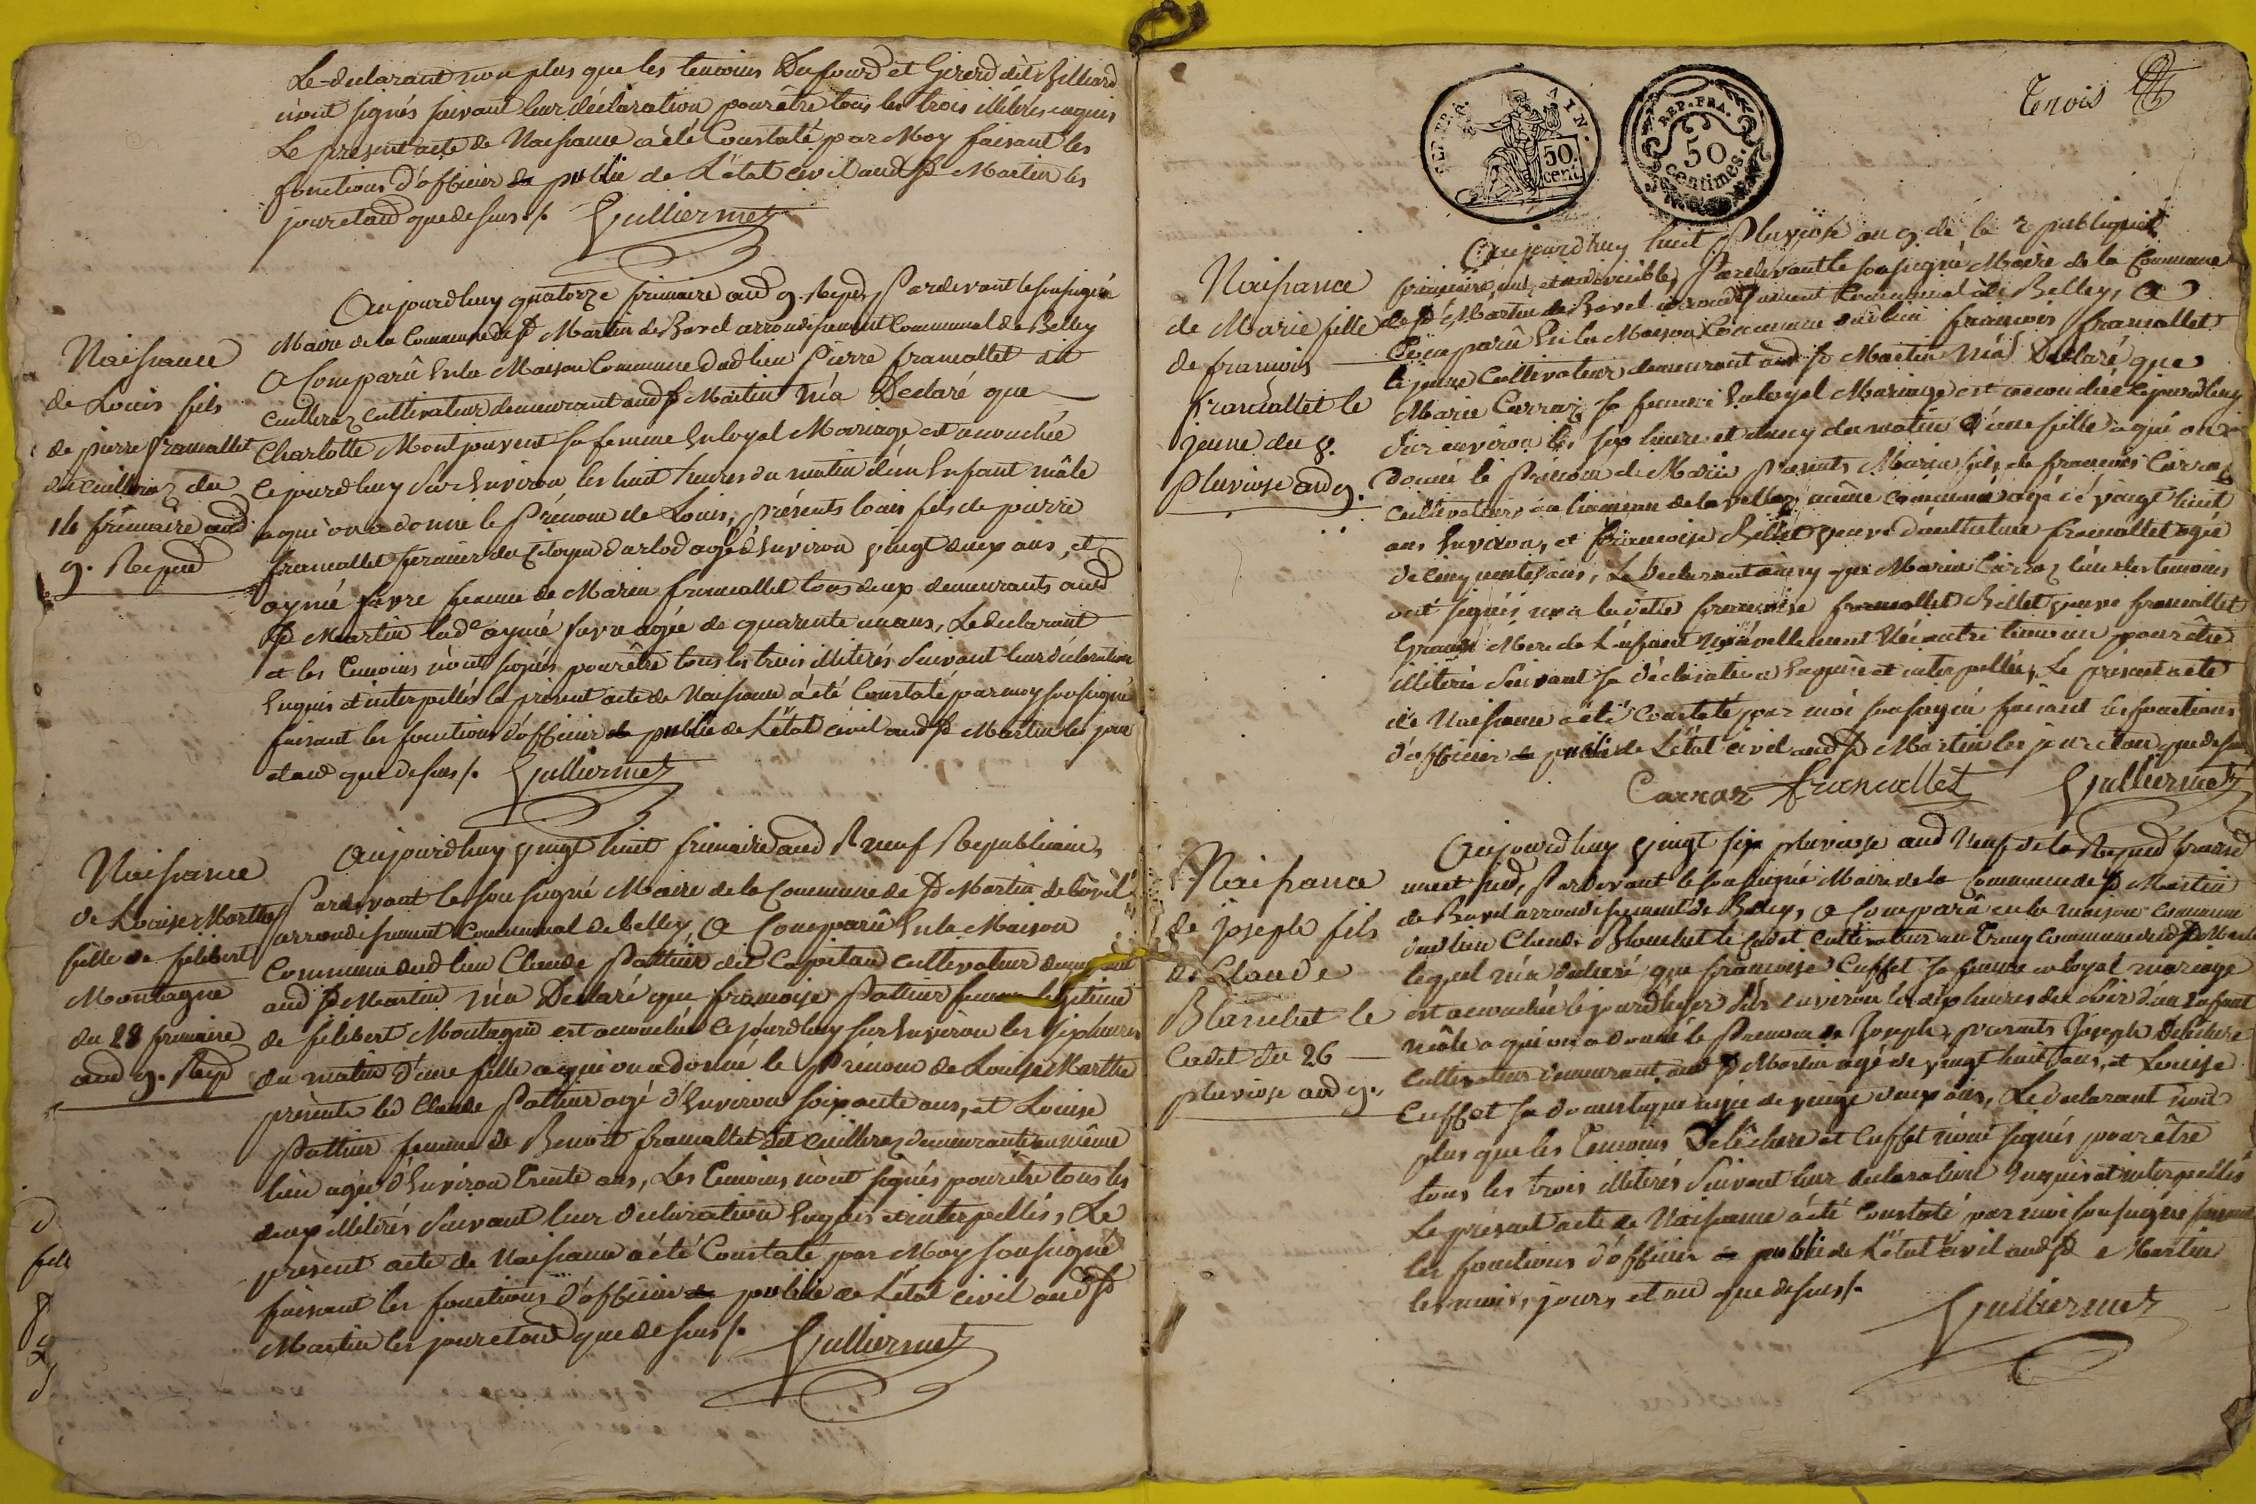 Le declarant non plus que les temoins Dufourd et Girerd dit Billiard
n'ont signés suivant leur déclaration pour être tous les trois illitérés enquis
Le present acte de Naissance a été Constaté par Moy faisant les
fonctions d'officier de public de L'état civil aud St Martin les
jour et and que dessus /. Gulliermet
Aujourdhuy quatorze frimaire and 9. Repud, Pardevant le soussigné
Maire de la Commune de St Martin de Bavel arrondissement Communal de Belley
A Comparû En la Maison Commune dud lieu Pierre framallet dit
Cuilleraz cultivateur demeurant aud St Martin M'a Declaré que
Charlotte Montjouvent sa femme En loyal Mariage est accouchée
Cejourdhuy Sur Environ les huit heures du matin d'un Enfant mâle
a qui on a donné le Prénom de Louis, présents louis fils de pierre
framallet fermier du Citoyen Darlod agé d'Environ vingt deux ans, et
aymé favre femme de Marin framallet tous deux demeurants aud
St Martin lade aymé favre agée de quarente un ans, Le declarant
et les Temoins n'ont signés pour être tous les trois illitérés Suivant leur déclaration
Enquis et interpellés le présent acte de Naissance a été Constaté par moy soussigné
faisant les fonctions d'officier de public de L'état civil aud St Martin les jour
et and que dessus /. Gulliermet
Naissance
de Louis fils
de pierre framallet
dit Cuilleraz du
14 frimaire and
9. Repud
Aujourdhuy vingt huit frimaire and Neuf Republicain,
Pardevant le soussigné Maire de la Commune de St Martin de bavel
arrondissement Communal de belley, A Comparû En la Maison
Commune dud lieu Claude Pattier dit Capitan cultivateur demeurant
aud St Martin M'a Declaré que françoise Pattier femme légitime
de filibert Montagne est accouchée Cejourdhuy sur Environ les six heures
du matin d'une fille a qui on a donné le Prénom de Louise Marthe
présents led Claude Pattier agé d'Environ soixante ans, et Louise
Pattier femme de Benoit framallet dit Cuilleraz demeurante au même
lieu agée d'Environ Trente ans, Les Temoins n'ont signés pour être tous les
deux illitérés Suivant leur declaration Enquis et interpellés, Le
présent acte de Naissance a été Constaté par Moy soussigné
faisant les fonctions d'officier de public de L'état civil aud St
Martin les jour et and que dessus /. Gulliermet
Naissance
de Louise Marthe
fille de filibert
Montagne
du 28 frimaire
and 9. Repd
Trois
REP. FRA. AIN.
50 cent.
REP. FRA.
50
centimes.
Aujourdhuy huit Pluviose an 9 de la Republique
française une et indivisible, Pardevant le soussigné Maire de la Commune
de St Martin de Bavel arrondissement Communal de Belley, A
Comparû En la Maison Commune dud lieu francois framallet
le jeune Cultivateur demeurant aud St Martin M'a Declaré que
Marie Carraz sa femme En loyal Mariage est accouchée Cejourdhuy
Sur environ les six heures et demy du matin d'une fille a qui on a
donné le Prénom de Marie Présents Marin fils de françois Carraz
cultivateur même Commune agé de vingt huit
ans Environ, et françoise Billet veuve framallet agée
de cinquente ans, Le Declarant ainsy que Marin Carraz l'un des temoins
ont signés non la dette françoise framallet Billet veuve framallet
Grande Mere de L'enfant Nouvellement Né autre temoin pour être
illitérée Suivant sa déclaration Enquise et interpellée, Le présent acte
de Naissance a été Constaté par moi soussigné faisant les fonctions
d'officier de public de L'état civil aud St Martin les jour et an que dessus
Carraz framallet Gulliermet
Naissance
de Marie fille
de francois
framallet le
jeune du 8.
Pluviose and 9.
Aujourdhuy vingt six pluviose and Neuf de la Repud franse
une et ind, Pardevant le soussigné Maire de la Commune de St Martin
de Bavel arrondissement de Belley, A Comparû en la maison Commune
dud lieu Claude Blanchet le Cadet Cultivateur au Commune dud St Martin
lequel m'a declaré que françoise Cuffet sa femme en loyal mariage
est accouchée Cejourdhyer Sur environ les dix heures du Soir d'un Enfant
mâle a qui on a donné le Prenom de Joseph, présents Joseph Delêchere
Cultivateur demeurant aud St Martin agé de vingt huit ans, et Louise
Cuffet sa domestique agée de vingt deux ans, Le declarant non
plus que les Temoins Delêchere et Cuffet n'ont signés pour être
tous les trois illitérés Suivant leur declaration Enquis et interpellés
Le présent acte de Naissance a été Constaté par moi soussigné faisant
les fonctions d'officier de public de L'état civil aud St Martin
les mois, jours, et and que dessus /.
Gulliermet
Naissance
de Joseph fils
de Claude
Blanchet le
Cadet du 26
pluviose and 9.